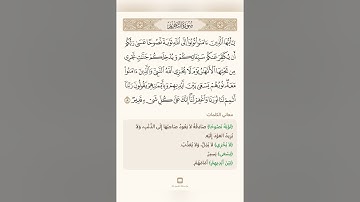 سُورَةُ التَّحْرِيمِ
يَٰٓأَيُّهَا ٱلَّذِينَ ءَامَنُوا۟ تُوبُوٓا۟ إِلَى ٱللَّهِ تَوْبَةً نَّصُوحًا عَسَىٰ رَبُّكُمْ
أَن يُكَفِّرَ عَنكُمْ سَيِّـَٔاتِكُمْ وَيُدْخِلَكُمْ جَنَّٰتٍ تَجْرِى
مِن تَحْتِهَا ٱلْأَنْهَٰرُ يَوْمَ لَا يُخْزِى ٱللَّهُ ٱلنَّبِىَّ وَٱلَّذِينَ ءَامَنُوا۟
مَعَهُۥ نُورُهُمْ يَسْعَىٰ بَيْنَ أَيْدِيهِمْ وَبِأَيْمَٰنِهِمْ يَقُولُونَ رَبَّنَآ
أَتْمِمْ لَنَا نُورَنَا وَٱغْفِرْ لَنَآ إِنَّكَ عَلَىٰ كُلِّ شَىْءٍ قَدِيرٌ ٨
معاني الكلمات
(تَوْبَةً نَصُوحًا) صَادِقَةً لَا يَعُودُ صَاحِبُهَا إِلَى الذَّنْبِ، وَلَا
يُرِيدُ العَوْدَ إِلَيْهِ.
(لَا يُخْزِي) لَا يُذِلُّ، وَلَا يُعَذِّبُ.
(يَسْعَى) يَسِيرُ.
(بَيْنَ أَيْدِيهِمْ) أَمَامَهُمْ.